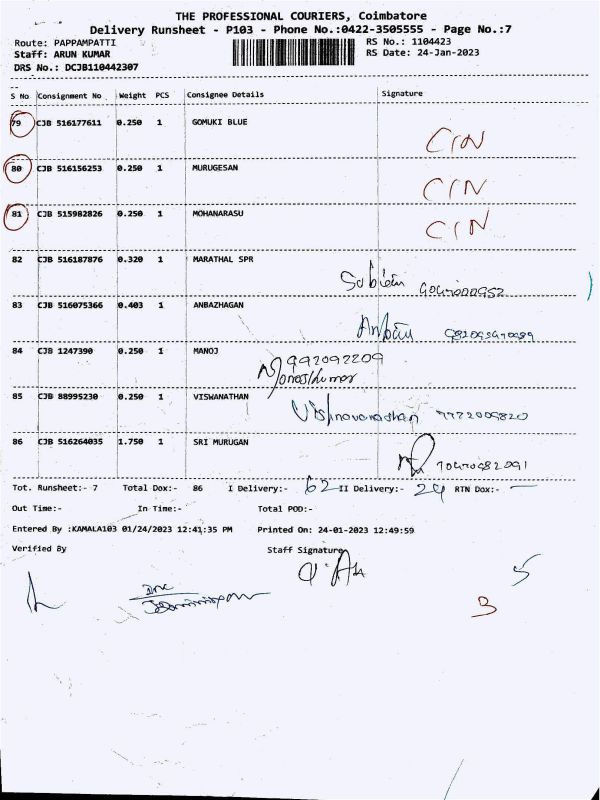 THE PROFESSIONAL COURIERS, Coimbatore
Delivery Runsheet - P103 - Phone No.:0422-3505555 - Page No.:7
Route: PAPPAMPATTI RS No.: 1104423
Staff: ARUN KUMAR RS Date: 24-Jan-2023
DRS No.: DCJB110442307
S No Consignment No Weight PCS Consignee Details Signature
79 CJB 516177611 0.250 1 GOMUKI BLUE
C/N
80 CJB 516156253 0.250 1 MURUGESAN
C/N
81 CJB 515982826 0.250 1 MOHANARASU
C/N
82 CJB 516187876 0.320 1 MARATHAL SPR
83 CJB 516075366 0.403 1 ANBAZHAGAN
84 CJB 1247390 0.250 1 MANOJ
992092209
85 CJB 88995230 0.250 1 VISWANATHAN
86 CJB 516264035 1.750 1 SRI MURUGAN
Tot. Runsheet:- 7 Total Dox:- 86 I Delivery:- 62 II Delivery:- 24 RTN Dox:- —
Out Time:- In Time:- Total POD:-
Entered By :KAMALA103 01/24/2023 12:41:35 PM Printed On: 24-01-2023 12:49:59
Verified By Staff Signature
5
3